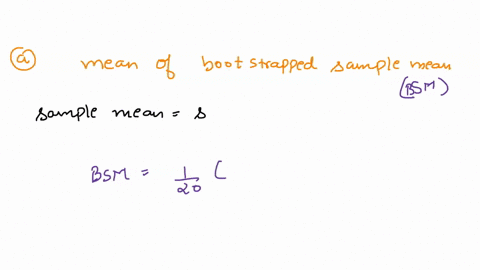 ⓐ mean of bootstrapped sample mean
(BSM)
sample mean = s
BSM = 1/20 (